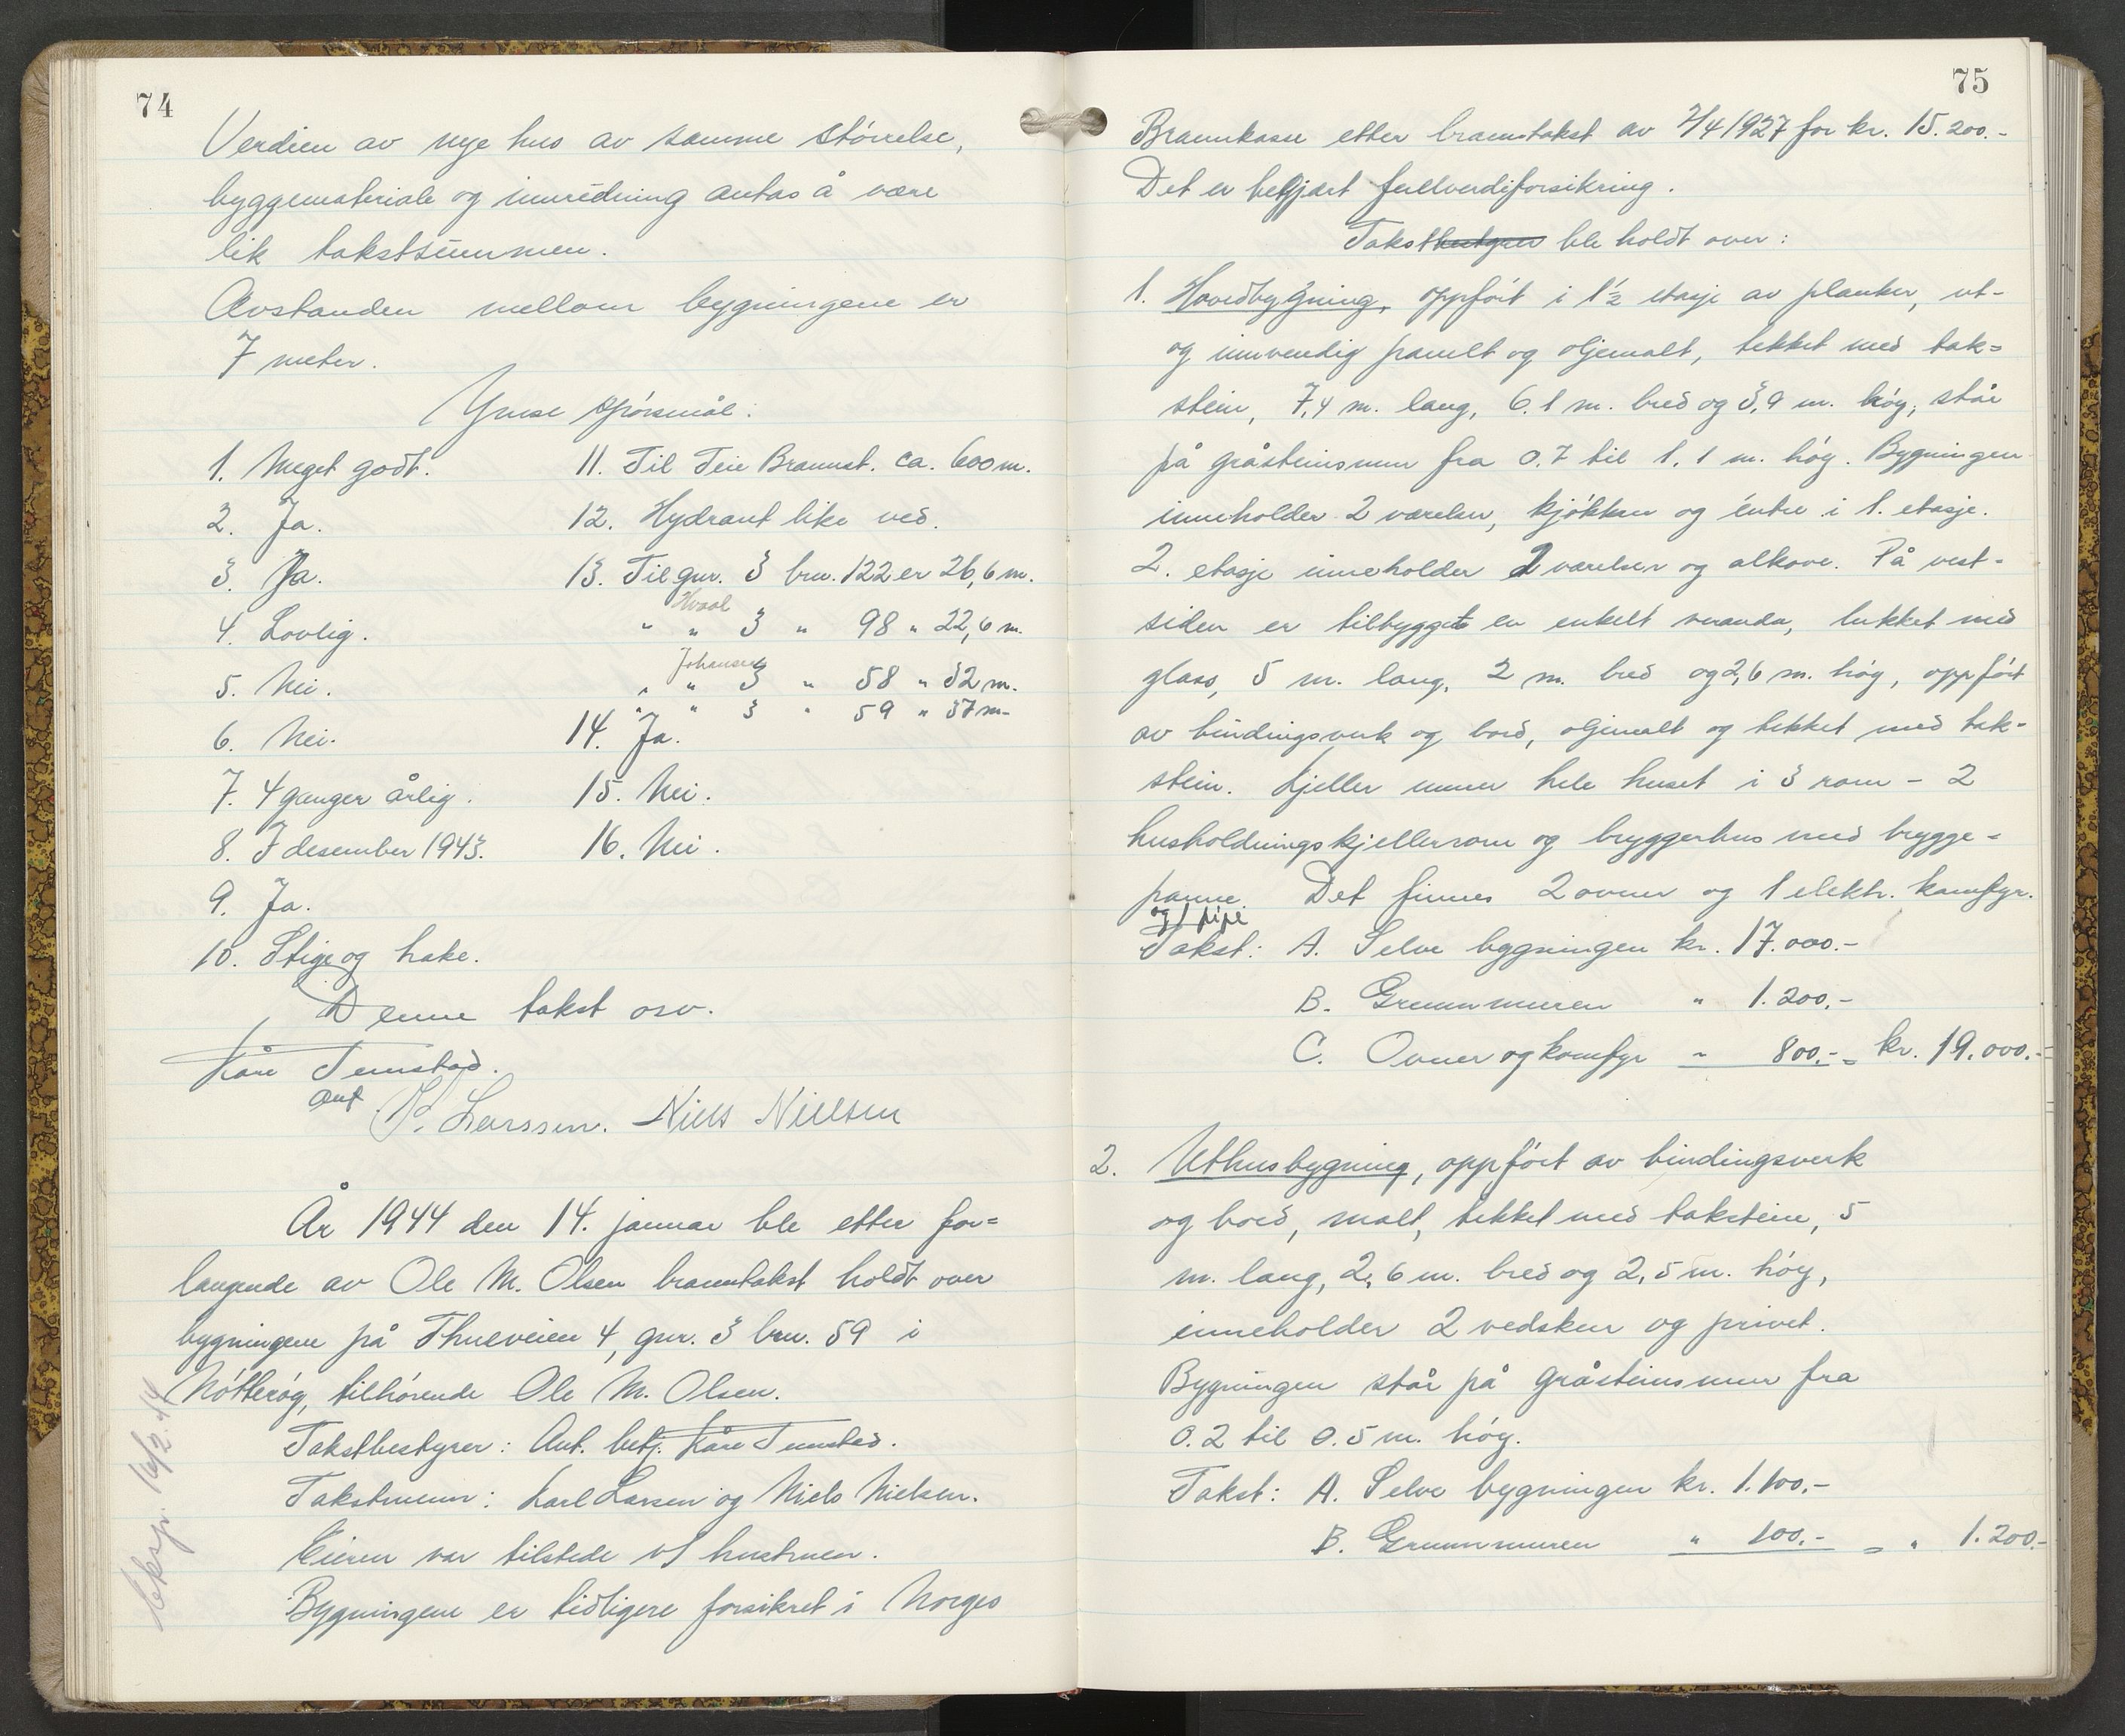 74
Verdien av nye hus av samme størrelse,
byggemateriale og innredning antas å være
lik takstsummen.
Avstanden mellom bygningene er
7 meter.
Ymse spörsmål:
1. Meget godt.
2. Ja.
3. Ja.
4. Lovlig.
5. Nei.
6. Nei.
7. 4 ganger årlig.
8. I desember 1943.
9. Ja.
10. Stige og hake.
11. Til Teie Brannst. ca. 600 m.
12. Hydrant like ved.
13. Til gnr. 3 bnr. 122 er 26,6 m.
Hvaal
" " 3 " 98 " 22,6 m.
Johansen
" " 3 " 58 " 32 m.
" " 3 " 59 " 37 m.
14. Ja.
15. Nei.
16. Nei.
Denne takst osv.
Kåre Temstad.
ant. K. Larssen. Niels Nielsen
År 1944 den 14. januar ble etter for=
langende av Ole M. Olsen branntakst holdt over
bygningene på Thueveien 4, gnr. 3 bnr. 59 i
Nötteröy, tilhørende Ole M. Olsen.
Takstbestyrer: Ant. betj. Kåre Temstad.
Takstmenn: Karl Larsen og Niels Nielsen.
Eieren var tilstede v/ hustruen.
Bygningene er tidligere forsikret i Norges
Eksp. 16/2.44
75
Brannkasse etter branntakst av 7/4 1927 for kr. 15.200.-
Det er begjært fullverdiforsikring.
Takstbestyrer ble holdt over:
1. Hovedbygning, oppfört i 1½ etasje av planker, ut-
og innvendig panelt og oljemalt, tekket med tak=
stein, 7,4 m. lang, 6.1 m. bred og 3,9 m. höy, står
på gråsteinsmur fra 0.7 til 1.1 m. höy. Bygningen
inneholder 2 værelser, kjökken og entre i 1. etasje.
2. etasje inneholder 2 værelser og alkove. På vest-
siden er tilbygget en enkelt veranda, lukket med
glass, 5 m. lang, 2 m. bred og 2,6 m. höy, oppfört
av bindingsverk og bord, oljemalt og tekket med tak-
stein. Kjeller under hele huset i 3 rom - 2
husholdningskjellerrom og bryggerhus med brygge-
panne. Det finnes 2 ovner og 1 elektr. komfyr.
og 1 pipe
Takst: A. Selve bygningen kr. 17.000.-
B. Grunnmuren " 1.200,-
C. Ovner og komfyr " 800.- = kr. 19.000.-
2. Uthusbygning, oppfört av bindingsverk
og bord, malt, tekket med takstein, 5
m. lang, 2,6 m. bred og 2,5 m. höy,
inneholder 2 vedskur og privet.
Bygningen står på gråsteinsmur fra
0.2 til 0.5 m. höy.
Takst: A. Selve bygningen kr. 1.100.-
B. Grunnmuren " 100.- = " 1.200.-